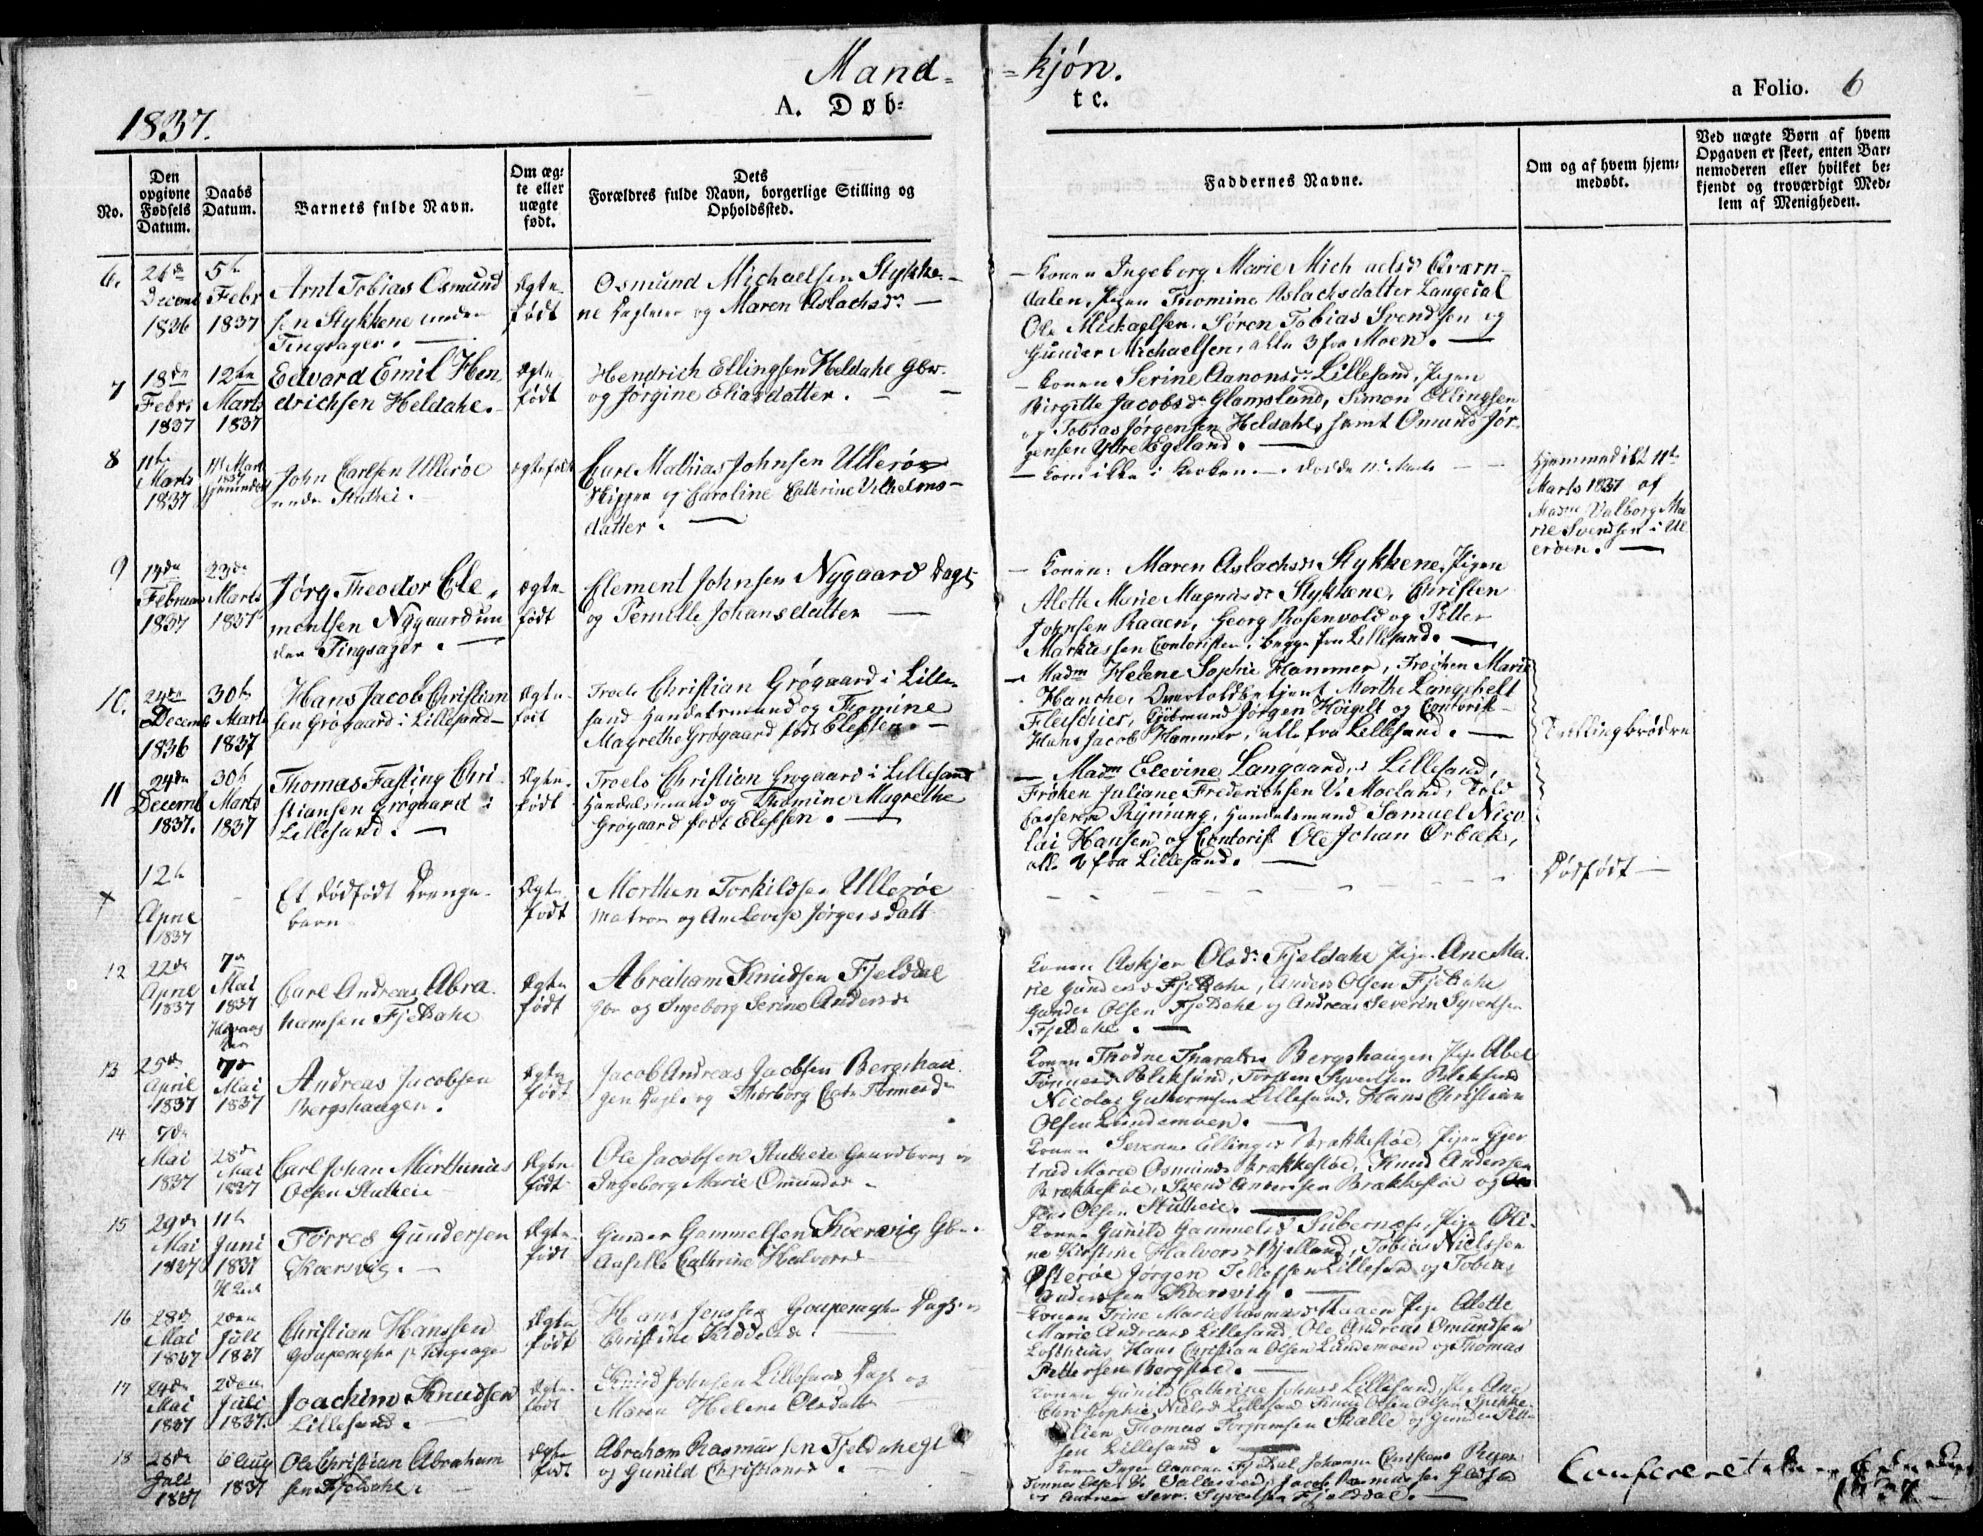 Mand= =kjøn.
1837.
A. Døb= tc.
a Folio. 6
No.
Den opgivne Fødsels Datum.
Daabs Datum.
Barnets fulde Navn.
Om ægte eller uægte født.
Dets Forældres fulde Navn, borgerlige Stilling og Opholdssted.
Faddernes Navne.
Om og af hvem hjemmedøbt.
Ved uægte Børn af hvem Opgaven er skeet, enten Barnemoderen eller hvilket bekjendt og troværdigt Medlem af Menigheden.
6.
Decemb
1836
5te
Febr
1837
Arnt Tobias Osmund
sen Stykkene under
Tingsager. —
Ægte
født
Osmund Michaelsen Stykke-
ne og Maren Aslachsdr —
— Konen Ingeborg Marie Michaelsd Qvarn-
dalen, Pigen Thomine Aslachsdatter Langedal
Ole Michaelsen, Søren Tobias Svendsen og
Gunder Michaelsen, alle 3 fra Moen. —
7
18de
Febr
1837
12te
Marts
1837
Edvard Emil Hen
drichsen Heldahl. —
Ægte
født
Hendrich Ellingsen Heldahl Gbr.
og Jørgine Eliasdatter. —
— Konen Serine Aanonsdr Lillesand, Pigen
Birgitte Jacobsdr Glamsland, Simon Ellingsen
og Tobias Jørgensen Heldahl, samt Omund Jør-
gensen Ytre Egeland. —
8
11te
Marts
1837
11te Marts
1837
John Carlsen Ullerøe
Ægtefødt
Carl Mathias Johnsen Ullerøe
Skipper og Caroline Cathrine Vilhelms-
datter. —
— Kom ikke i Kirken — døde
Hjemmedøbt 11te
Marts 1837 af
Madm Valborg Ma
rie Svendsen i Ul
erøen. —
9
14de
Februar
1837
23de
Marts
1837
Jørg Theodor Cle-
mentsen Nygaard un
der Tingsager. —
Ægte
født
Clement Johnsen Nygaard Dagl
og Pernille Johansdatter —
— Konen: Maren Aslachsdr Stykkene, Pigen
Alette Marie Magnusdr Stykkene, Christen
Johnsen Raaen, Georg Rosenvold og Petter
Markussen Contorister, begge fra Lillesand. —
10.
24de
Decemb
1836
30te
Marts
1837
Hans Jacob Christian
sen Grøgaard i Lillesand —
Ægte
født
Troels Christian Grøgaard i Lille-
sand Handelsmand og Thomine
Magrethe Grøgaard født Elefsen. —
— Madm Helene Sophie Hammer, Frøken Marie
Hanche, Overtoldbetjent Morthe Langfeldt
Fleischer, Jørgen Høigelt og Contorist
Hans Jacob Hammer, alle fra Lillesand. —
Tvillingbrødre
11
24de
Decemb
1837.
30te
Marts
1837
Thomas Fasting Chri-
stiansen Grøgaard i
Lillesand. —
Ægte
født
Troels Christian Grøgaard i Lillesand
Handelsmand og Thomine Magrethe
Grøgaard født Elefsen. —
— Madm Elevine Langaard, Lillesand,
Frøken Juliane Frederichsen V. Moeland, Told
casserer Ryning, Handelsmand Samuel Nico
lai Hansen og Contorist Ole Johan Ørbæk,
alle fra Lillesand. —
12te
April
1837
Et dødfødt Drenge-
barn
Ægte
født
Morthen Torkildsen Ullerøe
Matros og Ane Lovise Jørgensdatt
Dødfødt —
12
22de
April
1837
7de
Mai
1837
Carl Andreas Abra
hamsen Fjeldahl
Ægte
født
Abraham Knudsen Fjelddal
Gbr og Ingeborg Serine Andersdr
Konen Askjer Olsdr Fjeldahl Pige Ane Ma-
rie Gundersd Fjeldahl, Anders Olsen Fjeldahl
Gunder Olsen Fjeldahl og Andreas Severin Syvertsen
Fjeldahl. —
13
25de
April
1837
7de
Mai
1837
Andreas Jacobsen
Bergshaugen.
Ægte
født
Jacob Andreas Jacobsen Bergshau
gen Dagl. og Thorborg Tønnesdr
Konen Thodne Tharalds Bergshaugen Pige Abel
Tønnesd Bliksund, Torsten Syvertsen Bliksund
Nicolai Guttormsen Lillesand, Hans Christian
Olsen Lundemoen. —
14
7de
Mai
1837
28de
Mai
1837
Carl Johan Marthinius
Olsen Stutheie —
Ægte
født
Ole Jacobsen Stutheie Gaardbrug og
Ingeborg Marie Omundsd —
Konen Severine Ellingsd Brækkestøe, Pigen Gjer
trud Marie Osmundsd Brækkestøe, Knud Andersen
Brækkestøe, Svend Andersen Brækkestøe og
Olsen Stutheie. —
15
29de
Mai
1837
11te
Juni
1837
Tørres Gundersen
Kaersvig. —
Ægte
født
Gunder Gammelsen Kaersvig Gbr
Cathrine Halvorsd
Konen Gunild Gammelsd Tubernese, Pige Oli-
ne Kirstine Halvorsd Bjelland, Tobias Nielssen
Østerøe Jørgen Tellefsen Lillesand og Tobias
Gundersen Kaersvig. —
16
28de
Mai
1837
2den
Juli
1837
Christian Hanssen
Ægte
født
Hans Jenssen
Christine Kiddelsd —
Konen Trine Marie Rasmusd Raaen Pige Alette
Marie Andreasd Lillesand, Ole Andreas Omundsen
Loftheius, Hans Christian Olsen Lundemoen og Thomas
Pettersen Bergstøe. —
17
24de
Mai
1837
2den
Juli
1837.
Joachim Knudsen
Lillesand. —
Ægte
født
Knud Johnsen Lillesand Dagl og
Maren Helene Olsdatter
Konen Gunild Cathrine Johnsd Lillesand, Pige Ane
Nielsd Lillesand Knud Olsen
Thomas Torjussen Skalle og Gunder Pette
sen Lillesand. —
18
28de
Juli
1837
6 Aug
1837
Ole Christian Abraham
sen Fjeldahl.
Ægte
født
Abraham Rasmussen Fjeldahl
og Gunild Christiansd.
Syvertsen Fjelddal. —
Confereret
1837